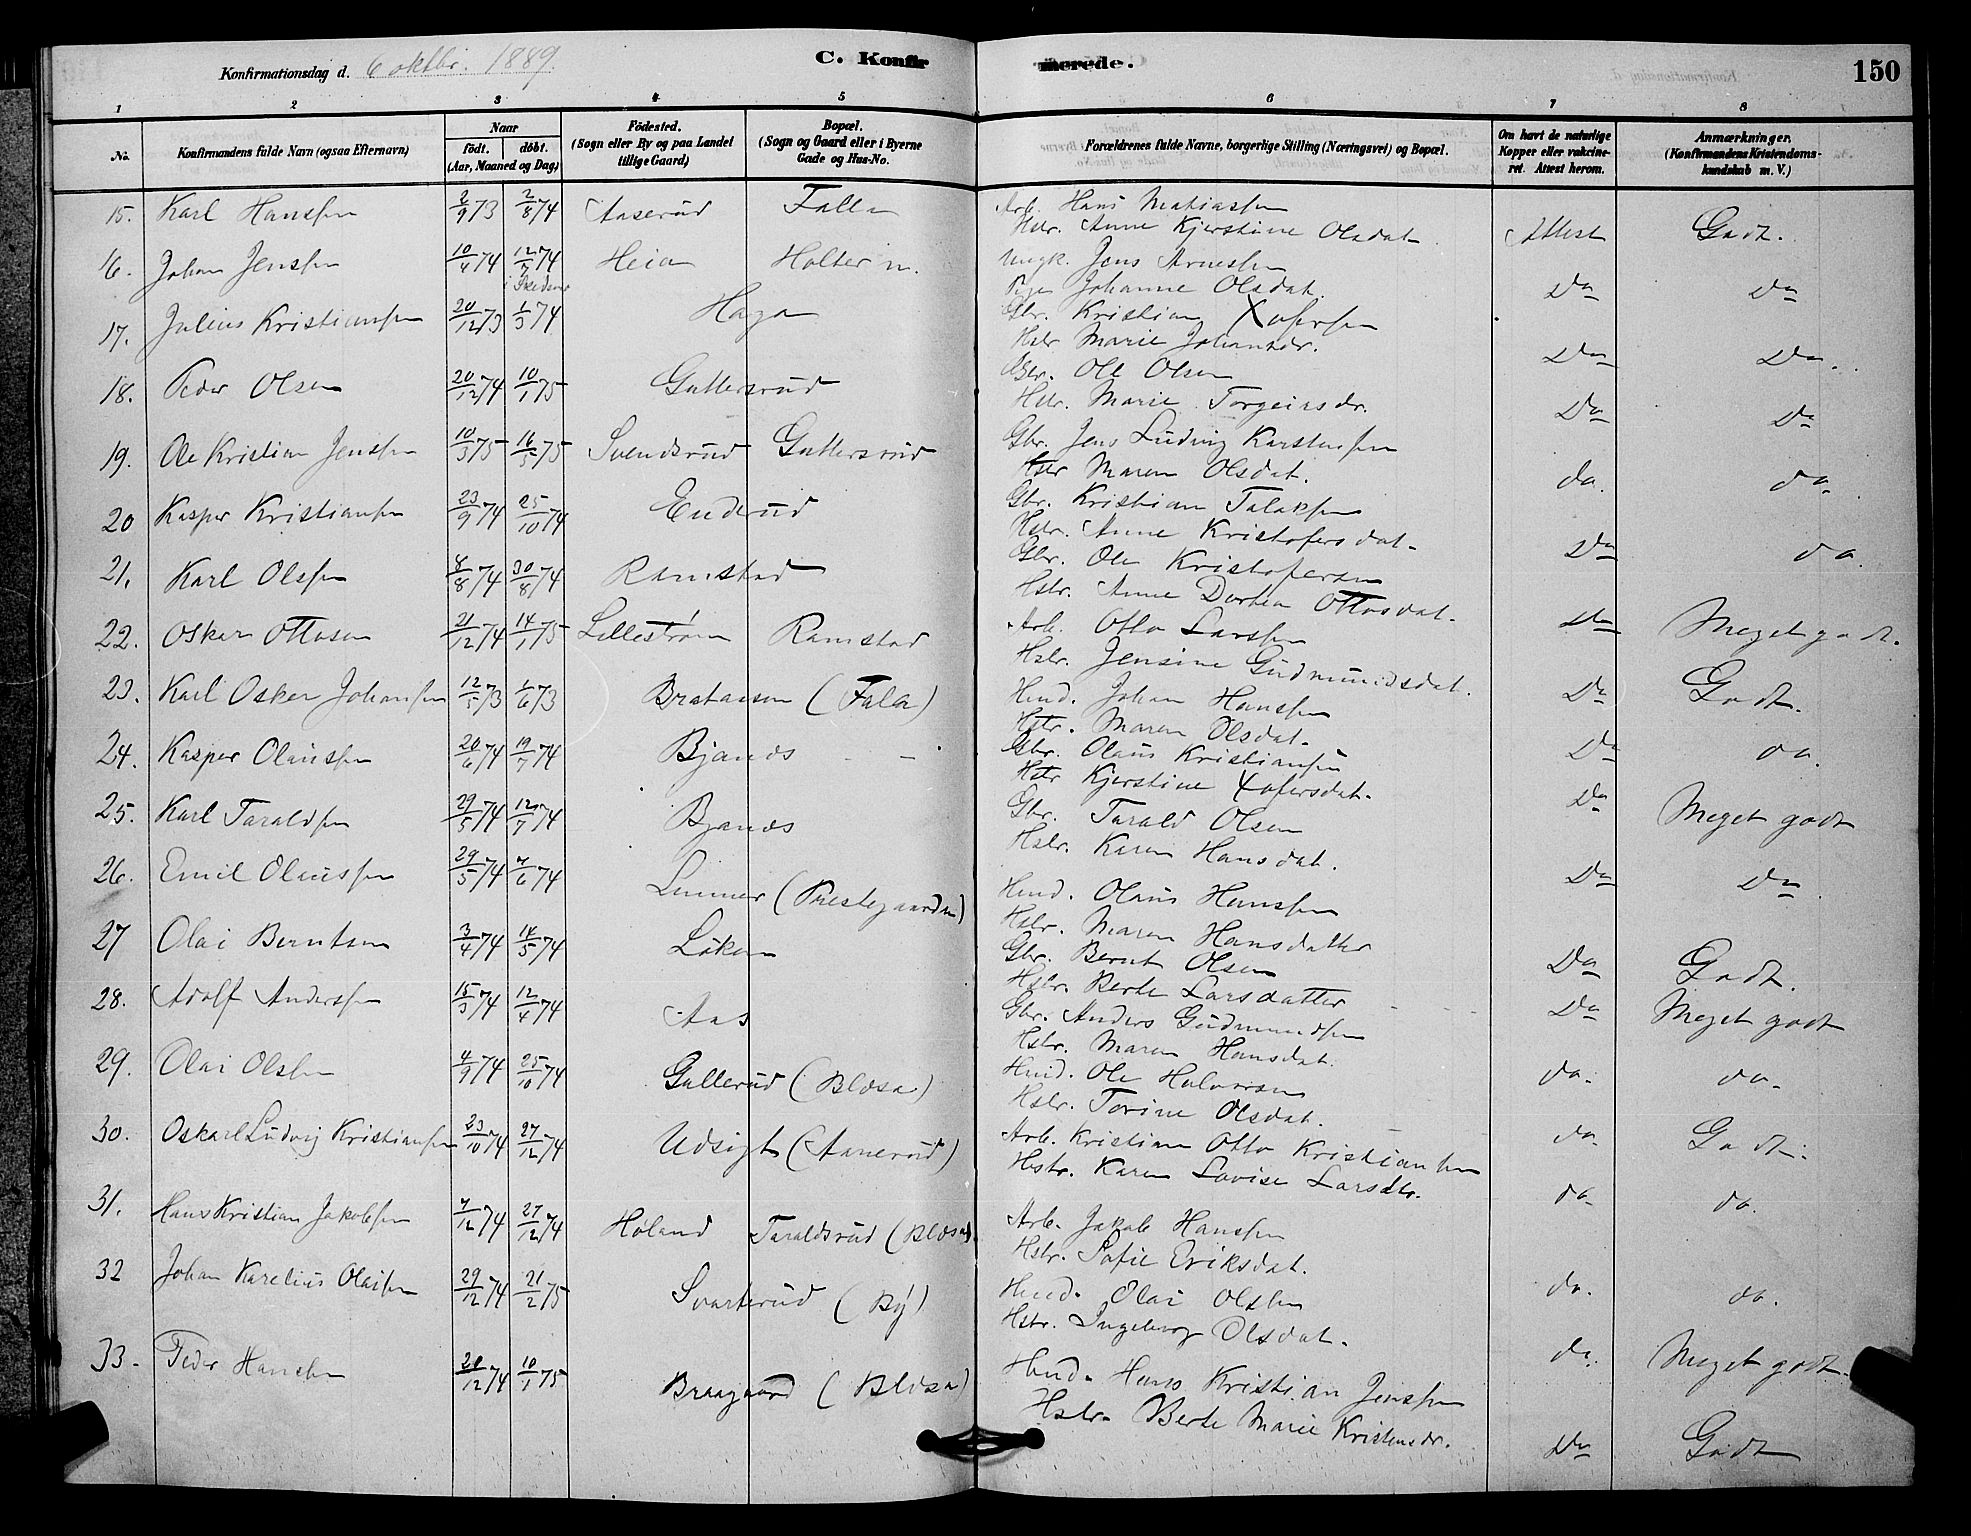 Konfirmationsdag d. 6 oktbr. 1889.
C. Konfirmerede.
150
1 2 3 4 5 6 7 8
No.
Konfirmandens fulde Navn (ogsaa Efternavn)
Naar
födt. döbt.
(Aar, Maaned og Dag)
Födested.
(Sogn eller By og paa Landet
tillige Gaard)
Bopæl.
(Sogn og Gaard eller i Byerne
Gade og Hus-No.
Forældrenes fulde Navne, borgerlige Stilling (Næringsvei) og Bopæl.
Om havt de naturlige
Kopper eller vaccine-
ret. Attest herom.
Anmærkninger.
(Konfirmandens Kristendoms-
kundskab m. V.)
15. Karl Hanssen 2/9 73 2/8 74 Aaserud Falla
Arb. Hans Matiassen
Hstr. Anne Kjerstine Olsdat. Attest Godt.
16. Johan Jenssen 10/4 74 12/7 74 i Skedsmo Heia Holter m.
Ungk. Jens Arnessen
Pige Johanne Olsdat. Do Do
17. Julius Kristiansen 20/12 73 1/3 74 Haga
Gbr. Kristian Xofersen
Hstr Marie Johansdr. Do Do.
18. Peder Olsen 20/12 74 10/1 75 Guttersrud
Gbr. Ole Olsen
Hstr. Marie Torgeirsdr. Do Do
19. Ole Kristian Jenssen 10/3 75 16/5 75 Svendsrud Guttersrud
Gbr. Jens Ludvig Karstensen
Hstr Maren Olsdat. do. do.
20 Kasper Kristiansen 23/9 74 25/10 74 Enderud
Gbr. Kristian Talaksen
Hstr. Anne Kristofersdat. Do do.
21. Karl Olssen 8/8 74 30/8 74 Ramstad
Gbr. Ole Kristofersen
Hstr. Anne Dortea Ottosdat. Do Meget godt.
22. Oskar Ottosen 21/12 74 14/1 75 Lillestrøm Ramstad
Arb. Otto Larssen
Hstr. Jensine Gudmundsdat. Do Godt.
23. Karl Oskar Johansen 12/5 73 1/6 73 Brataasen (Fala)
Hmd. Johan Hanssen
Hstr. Maren Olsdat. Do do.
24. Kasper Olaussen 20/6 74 19/7 74 Bjanes
Gbr. Olaus Kristiansen
Hstr Kjerstine Xofersdat. Do Meget godt
25. Karl Taraldsen 29/5 74 12/7 74 Bjanes
Gbr. Tarald Olsen
Hstr. Karen Hansdat. Do Do.
26. Emil Olaussen 29/5 74 7/6 74 Linner (Prestegaarden)
Hmd. Olaus Hanssen
Hstr. Maren Hansdatter Do Godt.
27 Olai Berntsen 3/4 74 14/5 74 Løken
Gbr. Bernt Olsen
Hstr. Berte Larsdatter Do Meget godt
28. Adolf Anderssen 15/3 74 12/4 74 Aas
Gbr. Anders Gudmundsen
Hstr. Maren Hansdat. do. do.
29. Olai Olssen 4/9 74 25/10 74 Gullerud (Blæsa)
Hmd. Ole Halvorsen
Hstr. Torine Olsdat. do. Godt.
30. Oskar Ludvig Kristiansen 23/10 74 27/12 74 Udsigt (Aanerud)
Arb. Kristian Otto Kristiansen
Hstr. Karen Lovise Larsdtr. do. do.
31. Hans Kristian Jakobsen 7/12 74 27/12 74 Høland Taraldsrud (Blæsa)
Arb. Jakob Hanssen
Hstr. Sofie Eriksdat. do. do.
32 Johan Karelius Olaisen 29/12 74 21/2 75 Svarterud (By)
Hmd. Olai Olssen
Hstr. Ingeborg Olsdat. do. Meget godt.
33. Peder Hanssen 20/12 74 10/1 75 Braagaard (Blæsa)
Hmd. Hans Kristian Jenssen
Hstr. Berte Marie Kristensdr. Do Godt